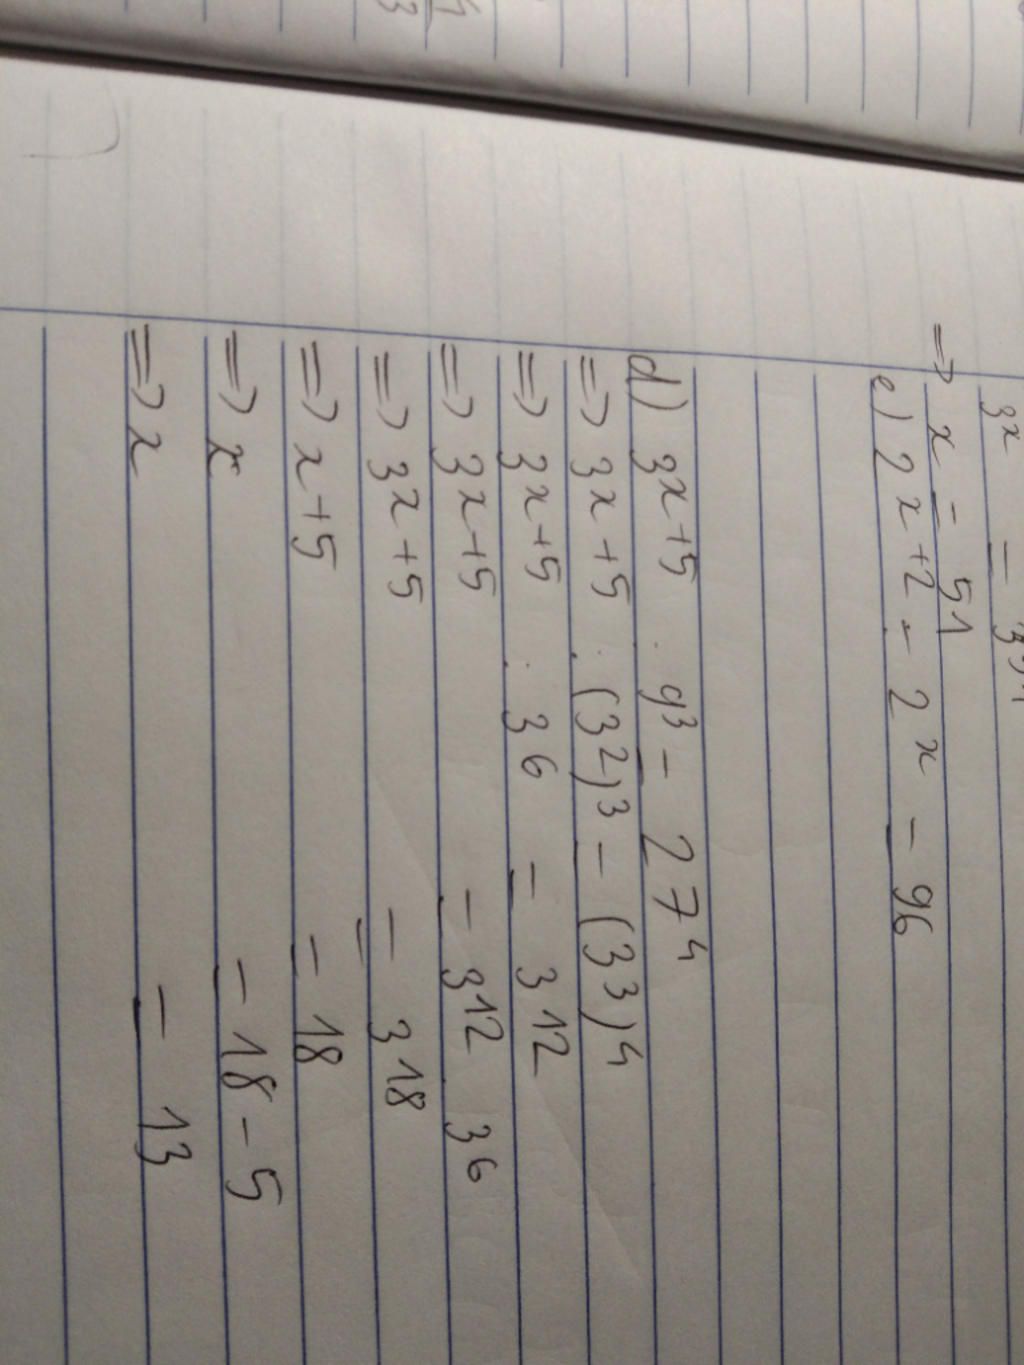 3x = 3 51
=> x = 51
e) 2 x+2 - 2 x = 96
d) 3x+5 . 9³ = 27⁴
=> 3x+5 . (3²)³ = (3³)⁴
=> 3x+5 . 36 = 312
=> 3x+5 = 312 . 36
=> 3x+5 = 318
=> x+5 = 18
=> x = 18-5
=> x = 13